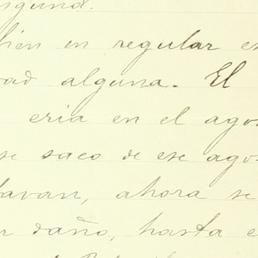 isguna.
bien en regular es
dad alguna. El
eria en el ago
se saco de ese ago
avan, ahora se
daño, hasta e